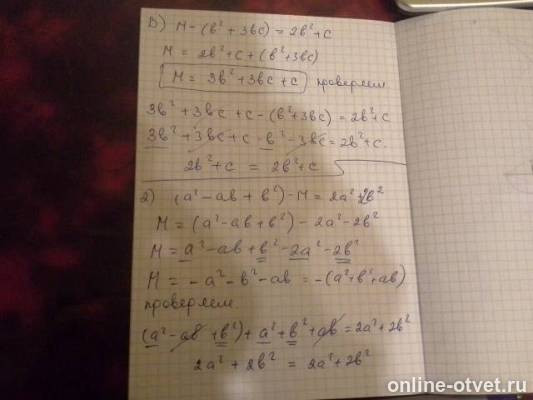 1) M-(b²+3bc) = 2b²+c
M = 2b²+c+(b²+3bc)
M = 3b²+3bc+c проверяем
3b²+3bc+c-(b²+3bc)=2b²+c
3b²+3bc+c-b²-3bc=2b²+c.
2b²+c = 2b²+c
2) (a²-ab+b²)-M = 2a²+2b²
M = (a²-ab+b²)-2a²-2b²
M = a²-ab+b²-2a²-2b²
M = -a²-b²-ab = -(a²+b²+ab)
проверяем
(a²-ab+b²)+a²+b²+ab=2a²+2b²
2a²+2b² = 2a²+2b²
online-otvet.ru